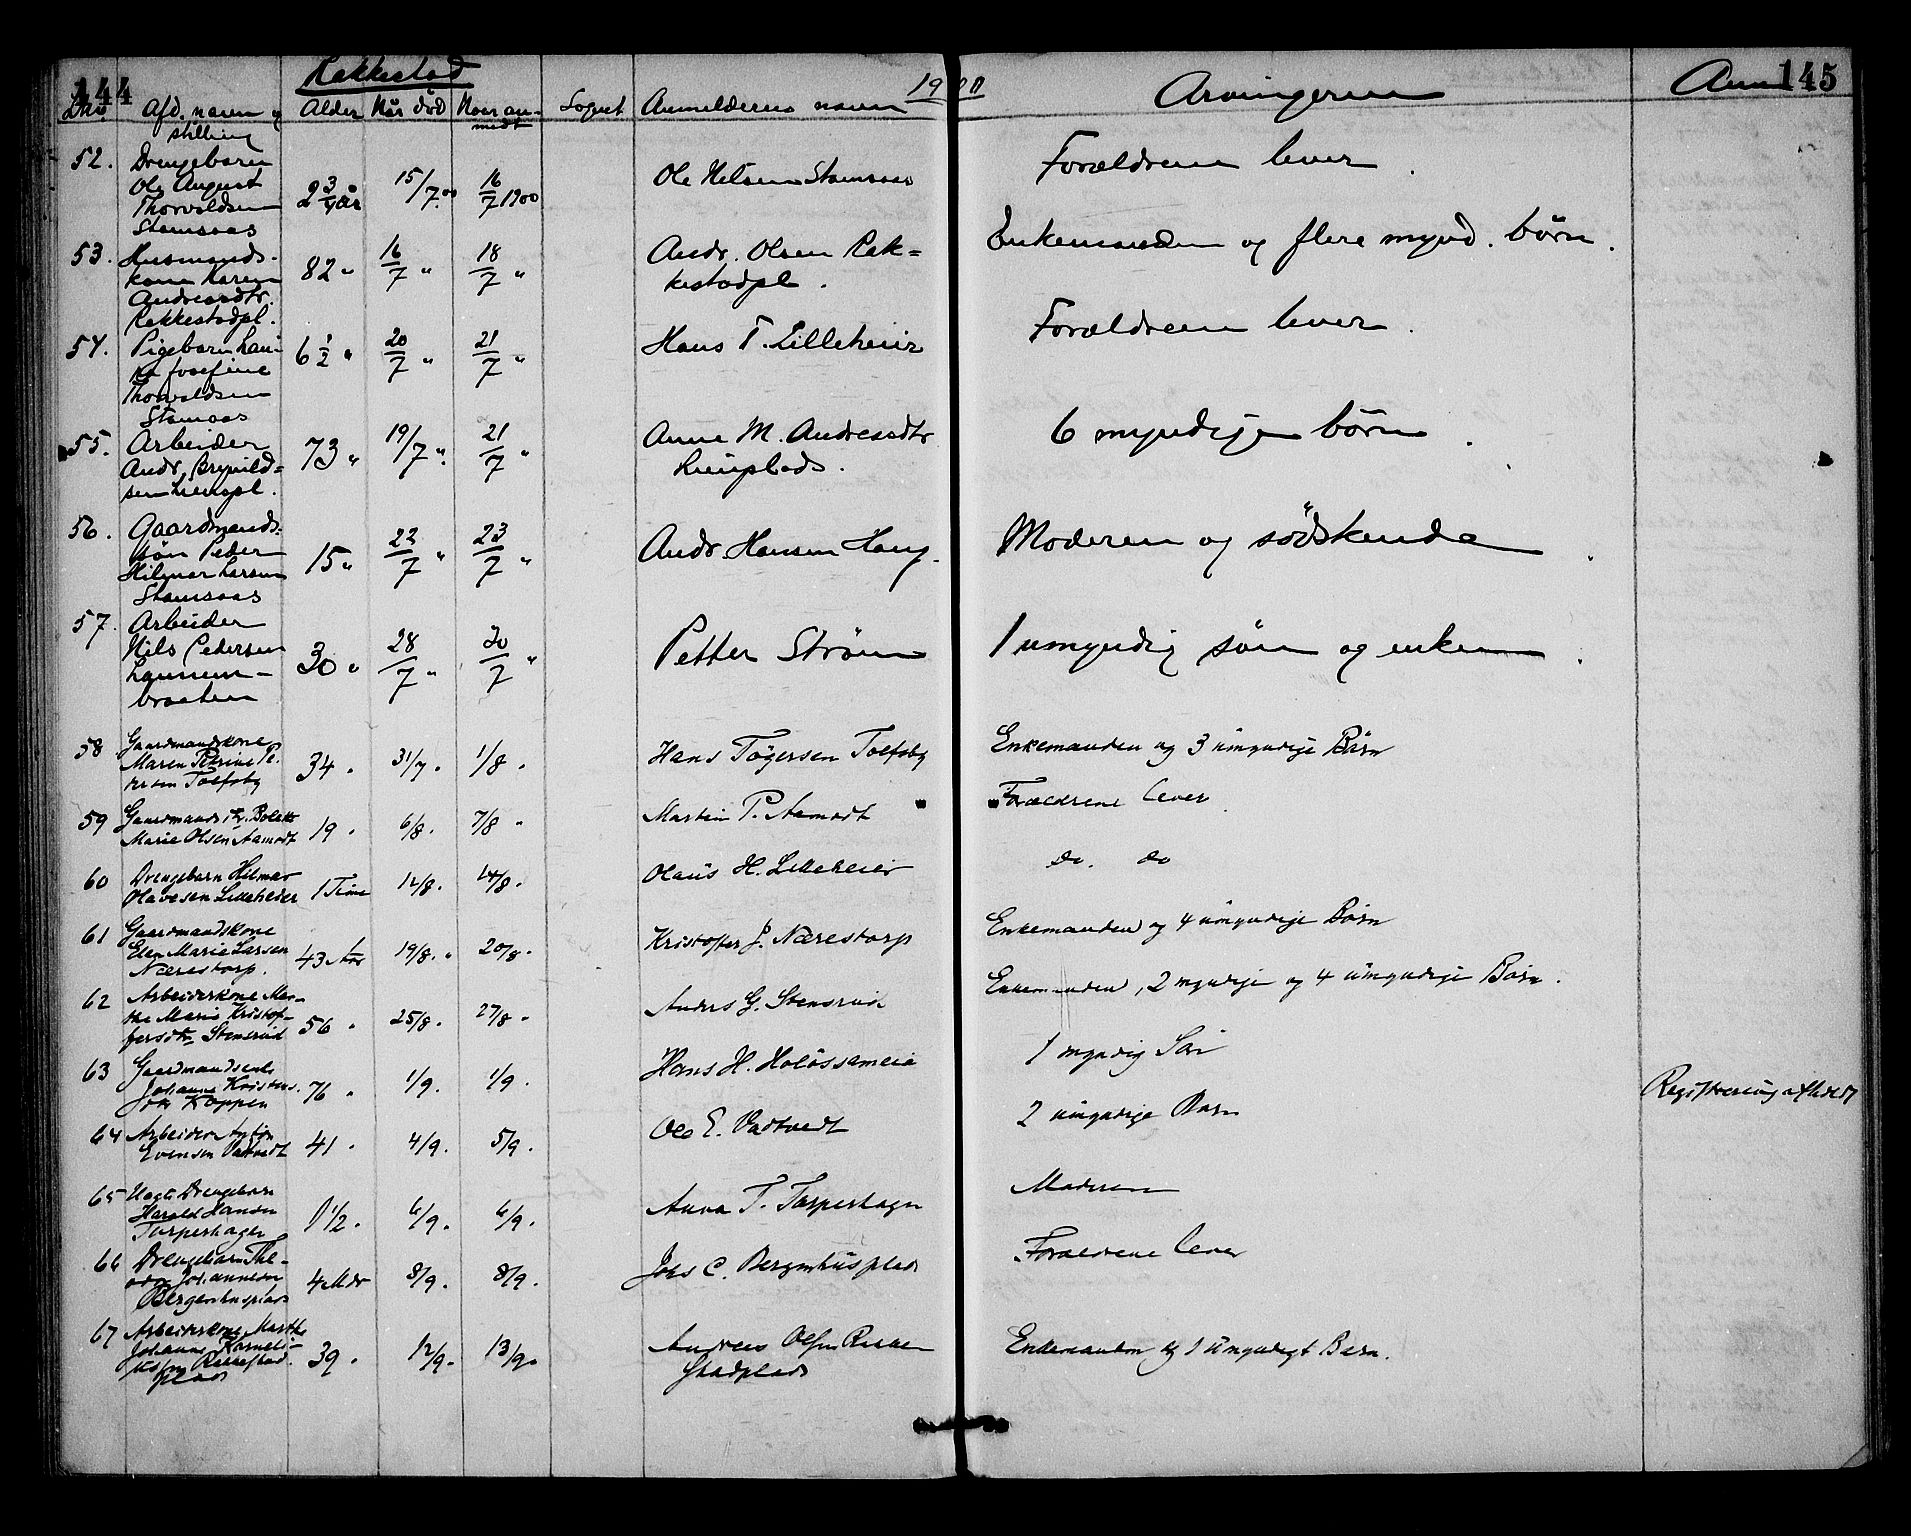 144 Rakkestad 1900 145
Lno Afd. navn og stilling Alder Når død Naar anmeldt Sognet Anmelderens navn Arvingerne Anm
52. Drengebarn
Ole August
Thorvaldsen
Stamsaas
2 3/4 år 15/7.00 16/7 1900 Ole Nilsen Stamsaas Forældrene lever.
53. Husmands-
kone Karen
Andreasdtr.
Rakkestadpl.
82 " 16/7 " 18/7 " Andr. Olsen Rak=
kestadpl.
Enkemanden og flere mynd. børn.
54. Pigebarn
Josefine
Thorvaldsen
Stamsaas
6 1/2 " 20/7 " 21/7 " Hans T. Lilleheier Forældrene lever.
55. Arbeider
Andr. Brynild=
sen
73 " 19/7 " 21/7 " Anne M. Andreasdtr
6 myndige børn.
56. Gaardmands-
søn Peder
Hilmar Larsen
Stamsaas
15 " 22/7 " 23/7 " Andr. Hansen Haug. Moderen og sødskende.
57. Arbeider
Nils Pedersen
braaten
30 " 28/7 " 30/7 " Petter Strøm 1 umyndig søn og enken.
58 Gaardmandskone
Maren Petrine Pe-
dersen Toefsby
34 " 31/7 " 1/8 " Hans Tøgersen Toefsby Enkemanden og 3 umyndige Børn
59 Gaardmandsdtr. Bolette
Marie Olsen Aamodt
19 " 6/8. 7/8 " Martin P. Aamodt Forældrene lever
60 Drengebarn Hilmar
Olavesen Lilleheier
1 Time 12/8. 14/8. Olaus H. Lilleheier do. do
61 Gaardmandskone
Elen Marie Larsen
Nærestorp.
43 Aar 19/8. " 20/8. Kristoffer J. Nærestorp Enkemanden og 4 umyndige Børn
62 Arbeiderkone Mar-
the Marie Kristof-
fersdtr. Stensrud
56 " 25/8. 27/8 " Anders G. Stensrud Enkemanden, 2 myndige og 4 umyndige Børn.
63 Gaardmandsenke
Johanne Kristens.
dtr Koppen
76 " 1/9. 1/9. Hans H. 1 myndig Søn
64 Arbeider Anton
Evensen Vadtvedt
41 " 4/9. 5/9. Ole E. Vadtvedt 2 umyndige Børn Registrering afholdt
65 Uægte Drengebarn
Harald Hansen
Torpershagen
1 1/2 " 6/9. 6/9. Anna T. Torpershagen Moderen
66 Drengebarn The-
odor Johannesen
Bergenhusplads
4 Mdr 8/9. 8/9. Johs C. Bergenhusplads Forældrene lever
67 Arbeiderkone Marthe
Johanne Korneli-
usen Rakkestad-
plads
39 " 12/9. 13/9. Andreas Olsen Rakke-
stadplads
Enkemanden og 1 umyndigt Barn.